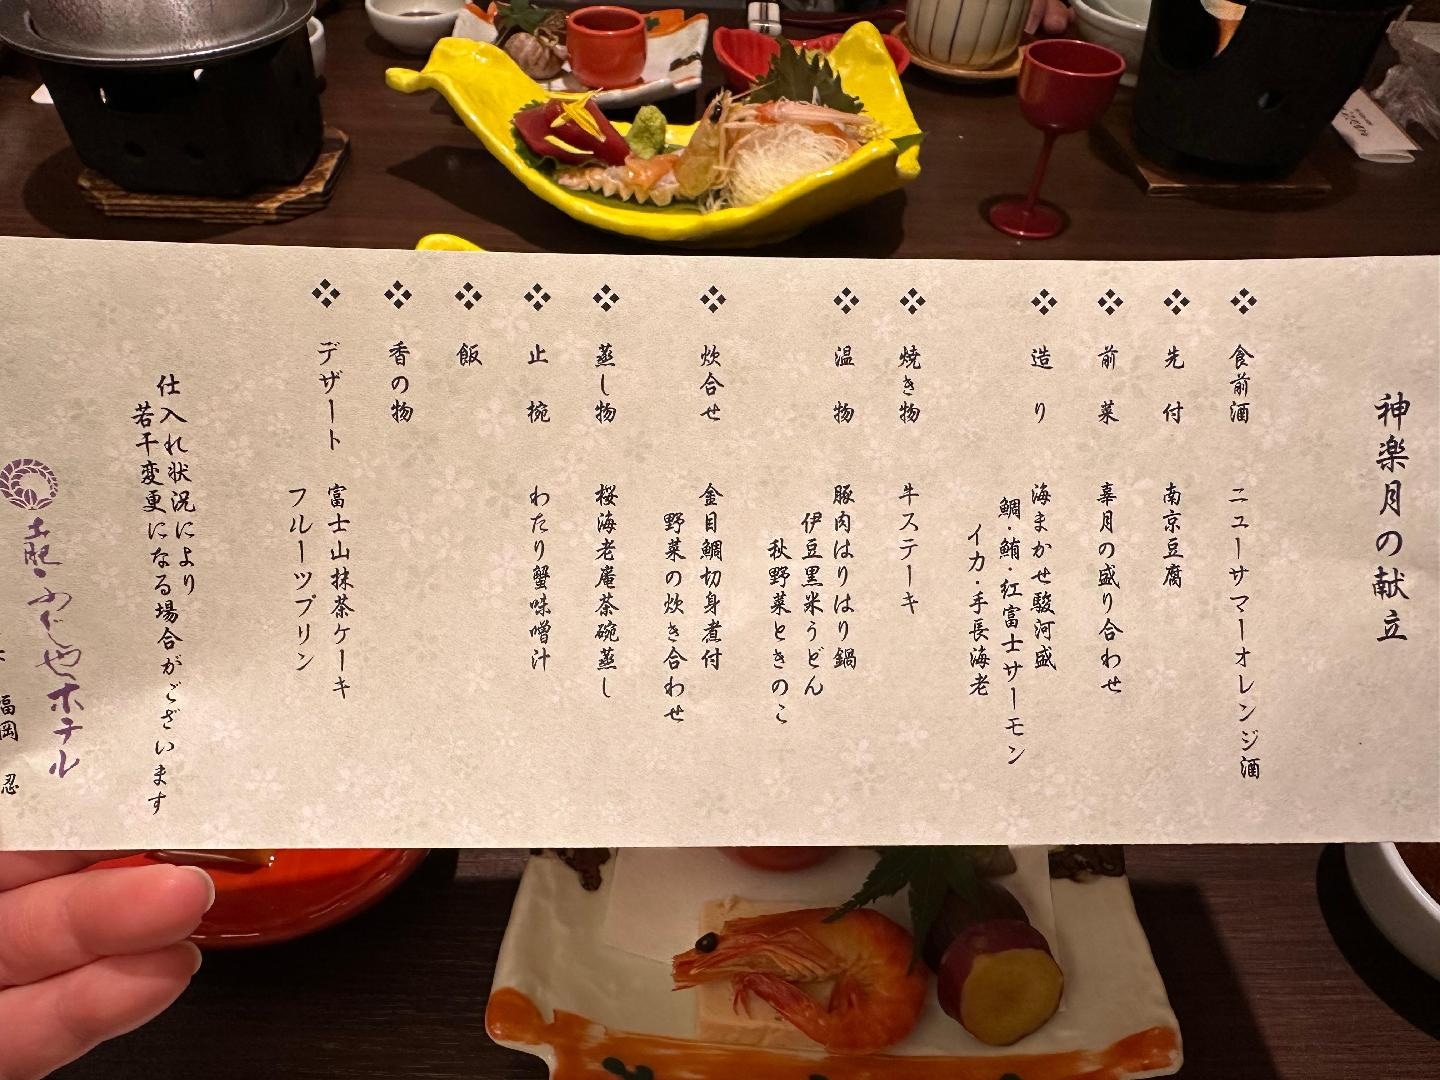 神楽月の献立
❖ 食前酒 ニューサマーオレンジ酒
❖ 先付 南京豆腐
❖ 前菜 辜月の盛り合わせ
❖ 造り 海まかせ駿河盛
鯛・鮪・紅富士サーモン
イカ・手長海老
❖ 焼き物 牛ステーキ
❖ 温物 豚肉はりはり鍋
伊豆黒米うどん
秋野菜ときのこ
❖ 炊合せ 金目鯛切身煮付
野菜の炊き合わせ
❖ 蒸し物 桜海老庵茶碗蒸し
❖ 止椀 わたり蟹味噌汁
❖ 飯
❖ 香の物
❖ デザート 富士山抹茶ケーキ
フルーツプリン
仕入れ状況により
若干変更になる場合がございます
土肥ふじやホテル
福岡 忍